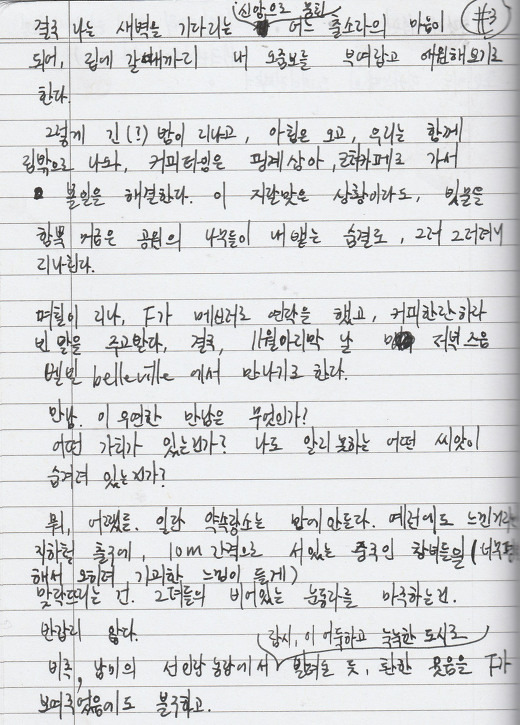 #3
신앙으로 뭉친
결국 나는 새벽을 기다리는 어느 출소라의 마음이
되어, 집에 갈때까지 내 오줌보를 부여잡고 애원해보기로
한다.
그렇게 긴(?) 밤이 지나고, 아침은 오고, 우리는 함께
집밖으로 나와, 커피타임은 핑계삼아, 근처카페로 가서
볼일을 해결한다. 이 지랄맞은 상황이라도, 빗물을
함뿍 머금은 공원의 나무들이 내뱉는 숨결로, 그저 그러려니
지나친다.
며칠이 지나, F가 메신저로 연락을 했고, 커피한잔하자
빈 말을 주고받다, 결국, 11월마지막 날 저녁즈음
벨빌 belleville 에서 만나기로 한다.
만남. 이 우연한 만남은 무엇인가?
어떤 가치가 있는건가? 나도 알지못하는 어떤 씨앗이
숨겨져 있는건가?
뭐, 어쨌든. 일단 약속장소는 맘에 안든다. 예전에도 느낀거지만
지하철 출구에, 10m 간격으로 서있는 중국인 창녀들을 (너무
해서 오히려 기괴한 느낌이 들게)
맞닥뜨리는 건. 그녀들의 비어있는 눈동자를 마주하는건.
반갑지 않다.
잠시, 이 어둑하고 눅눅한 도시로
비록, 남미의 선인장 농장에서 빌려온 듯, 환한 웃음을 F가
보여주었음에도 불구하고.